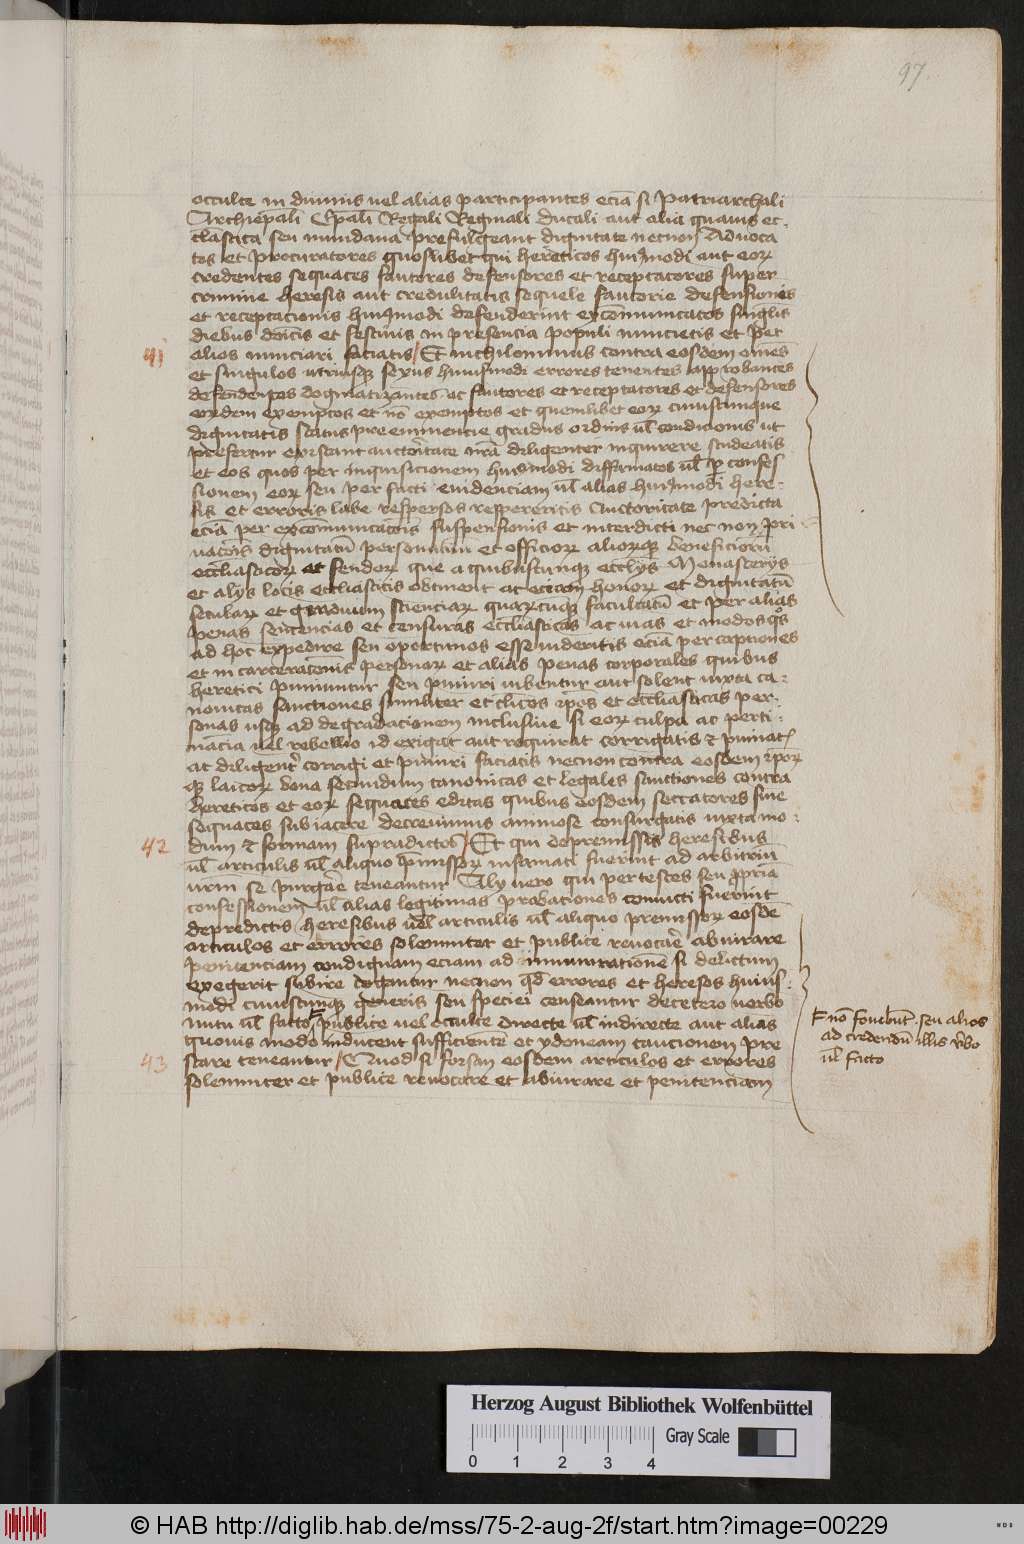 97
occulte in diuinis uel alias participantes eciā si Patriarchali
Archiepali Epali Regali Reginali Ducali aut alia quauis ec-
clāstica seu mundana prefulgeant dignitate necnon Aduoca
tos et procuratores quoslibet qui hereticos huiꝰmodi aut eoꝝ
credentes sequaces fautores defensores et receptatores super
crimine heresis aut credulitatis sequele fautorie defensionis
et receptacionis huiꝰmodi defenderint excōmunicatos singlis
diebus dōicis et festiuis in presencia populi nuncietis et per
41 alios nunciari faciatis / Et nichilominus contra eosdem omēs
et singulos utriusqꝫ sexus huiusmodi errores tenentes approbantes
defendentes dogmatizantes ac fautores et receptatores et defensores
eorūdem exemptos et nō exemptos et quemlibet eoꝝ cuiuscunque
dignitatis status preeminencie gradus ordinis ul̄ condicionis ut
prefertur existant auctoritate nrā diligenter inquirere studeatis
et eos quos per inquisicionem huiꝰmodi diffamatos ul̄ ꝑ confes
sionem eoꝝ seu per facti euidenciam ul̄ alias huiꝰmodi here-
sis et erroris labe respersos reppereritis Auctoritate predicta
eciā per excōmunicacōnis suspensionis et interdicti nec non pri
uacōnis dignitatū personatuū et officioꝝ alioꝝqꝫ beneficiorū
eccliasticoꝝ et feudoꝝ que a quibuscunqꝫ eccliis Monasteriis
et aliis locis eccliasticis obtinent ac eciam honoꝝ et dignitatū
seculariū et graduum scienciaꝝ quaꝝcūqꝫ facultatū et per alias
penas sentencias et censuras eccliasticas ac uias et modos qͦs
ad hoc expedire seu oportunos esse uideritis eciā per capciones
et incarceracōnis personaꝝ et alias penas corporales quibus
heretici puniuntur seu puniri iubentur aut solent iuxta ca-
nonicas sanctiones similiter et clicos ipōs et eccliasticas per-
sonas usqꝫ ad degradacionem inclusiue si eoꝝ culpa ac perti-
nacia uel rebellio id exigat aut requirat corrigatis et puniatis
ac diligentꝰ corrigi et puniri faciatis necnon contra eosdem ipoꝝ
qꝫ laicoꝝ bona secundum canonicas et legales sanctiones contra
hereticos et eoꝝ sequaces editas quibus eosdem sectatores siue
sequaces subiacere decreuimus animose consurgatis iuxta mo-
42 dum et formam supradictos / Et qui depremissis heresibus
ul̄ articulis ul̄ aliquo pmissoꝝ infamati fuerint ad arbitriū
urm se purgare teneantur Alii uero qui per testes seu ꝓpriā
confessionem ul̄ alias legitimas probationes conuicti fuerint
depredictis heresibus uel articulis ul̄ aliquo premissoꝝ eosdē
articulos et errores solemniter et publice reuocare abiurare
penitenciam condignam eciam ad immurationē si delictum
exegerit subire cogantur necnon qd errores et hereses huius-
modi cuiuscunqꝫ generis seu speciei censeantur decetero uerbo
nutu ul̄ facto publice uel occulte directe ul̄ indirecte aut alias
quouis modo inducent sufficientē et ydoneam caucionem pre
43 stare teneantur / Quod si forsan eosdem articulos et errores
solemniter et publice reuocare et abiurare et penitenciam
nō fouebūt seu alios
ad credendū illis ūbo
ul̄ facto
Herzog August Bibliothek Wolfenbüttel
Gray Scale
0 1 2 3 4
© HAB http://diglib.hab.de/mss/75-2-aug-2f/start.htm?image=00229